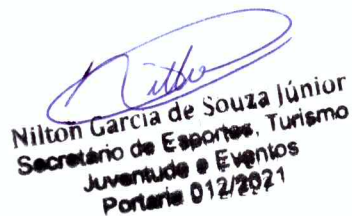 Nilton Garcia de Souza Júnior
Secretário de Esportes, Turismo
Juventude e Eventos
Portaria 012/2021